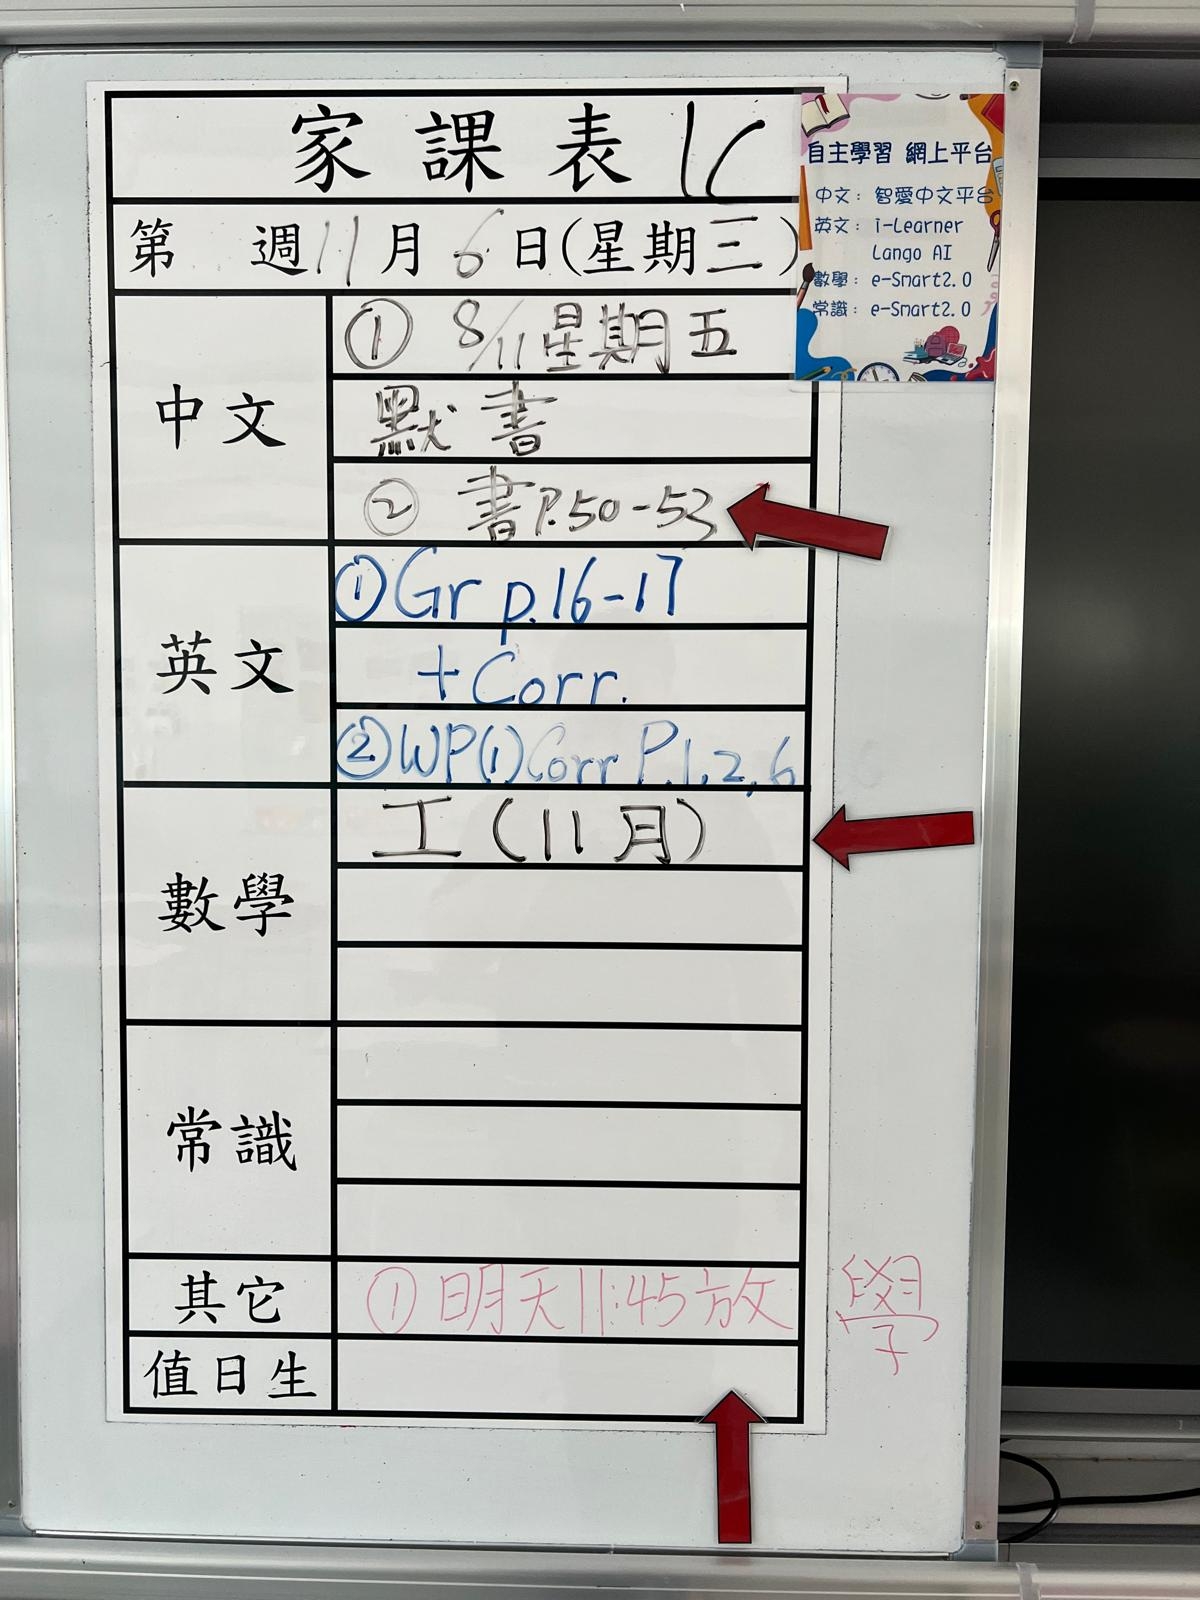 家課表 1C
第 週 11月6日(星期三)
自主學習 網上平台
中文：智愛中文平台
英文：i-Learner
Lango AI
數學：e-Smart2.0
常識：e-Smart2.0
中文
① 8/11星期五
默書
② 書P.50-53
英文
①Gr p.16-17
+Corr.
②WP(1)Corr P.1,2,6
數學
工(11月)
常識
其它
① 明天11:45放學
值日生